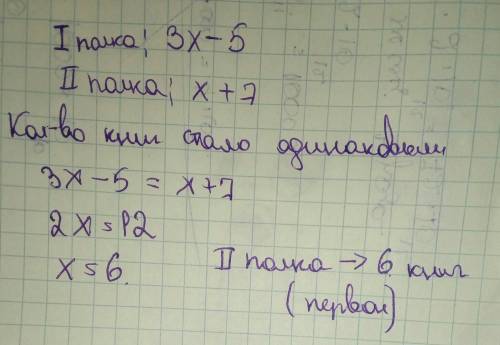 I полка; 3x-5
II полка; x+7
Кол-во книг стало одинаковым
3x-5 = x+7
2x=12
x=6.
II полка → 6 книг
(первон)